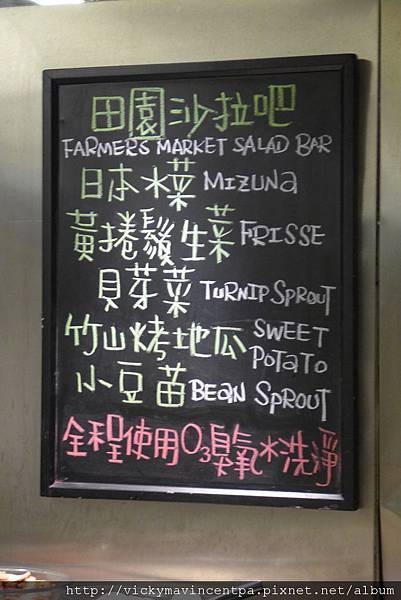 田園沙拉吧
FARMERS MARKET SALAD BAR
日本水菜 MIZUNA
黃捲鬚生菜 FRISSE
貝芽菜 TURNIP SPROUT
竹山烤地瓜 SWEET POTATO
小豆苗 BEAN SPROUT
全程使用O3臭氧水洗淨
http://vickymavincentpa.pixnet.net/album